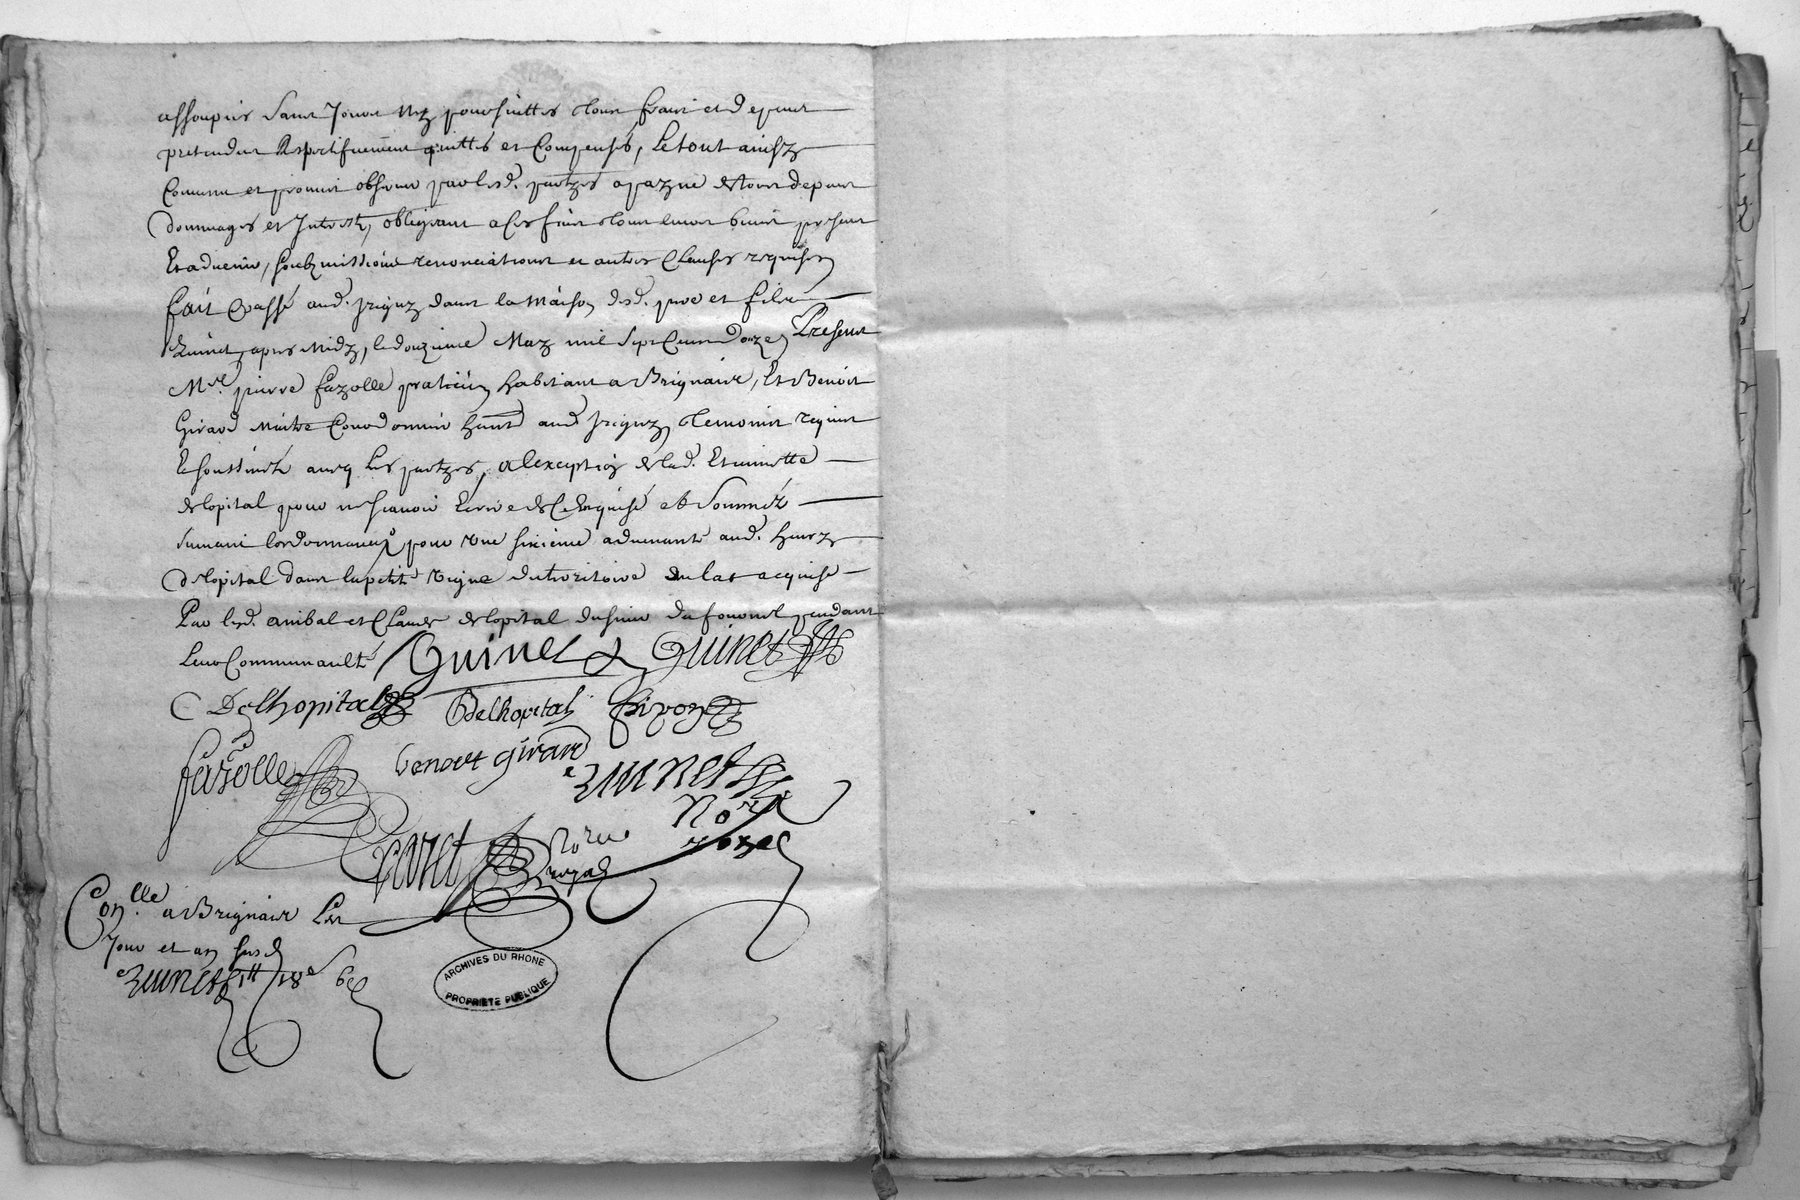 assoupis sans jouir ny poursuittes tous frais et depans
pretendus Respectifuement quittés et Compensés, Le tout ainsy
Conuenu et promis obseruer par lesd. partyes a payne de tous depans
dommages et Interest, obligeant a ces fins tous leurs biens presens
Et aduenir, soubzmissions renonciations et autres Clauses requises
fait et passé aud. Irigny dans la Maison desd. pere et fils
quinet, apres Midy, le douzieme May mil sept Cens Douze, Presens
Mre. pierre fazolle praticien habitant a Brignais, Et Benoit
Girard Maitre Cordonnier habt. aud. Irigny, temoins requis
Et soussinés auec les partyes, a l'exception de lad. Etiennette
delopital pour ne scauoir Ecrire de Ce Enquise et Sommée
suiuant l'ordonnance, pour une sixieme aduenante aud. heurs
delopital dans la petite vigne du territoire du lat acquise
Par lesd. anibal et Claude delopital du sieur du fournel pendant
leur Communaulté Quinet Quinet
C Delhopital Delhopital
fazolle benoit girard
Nore royal
Conlle. a Brignais Les
Jour et an susd.
ARCHIVES DU RHONE
PROPRIETE PUBLIQUE